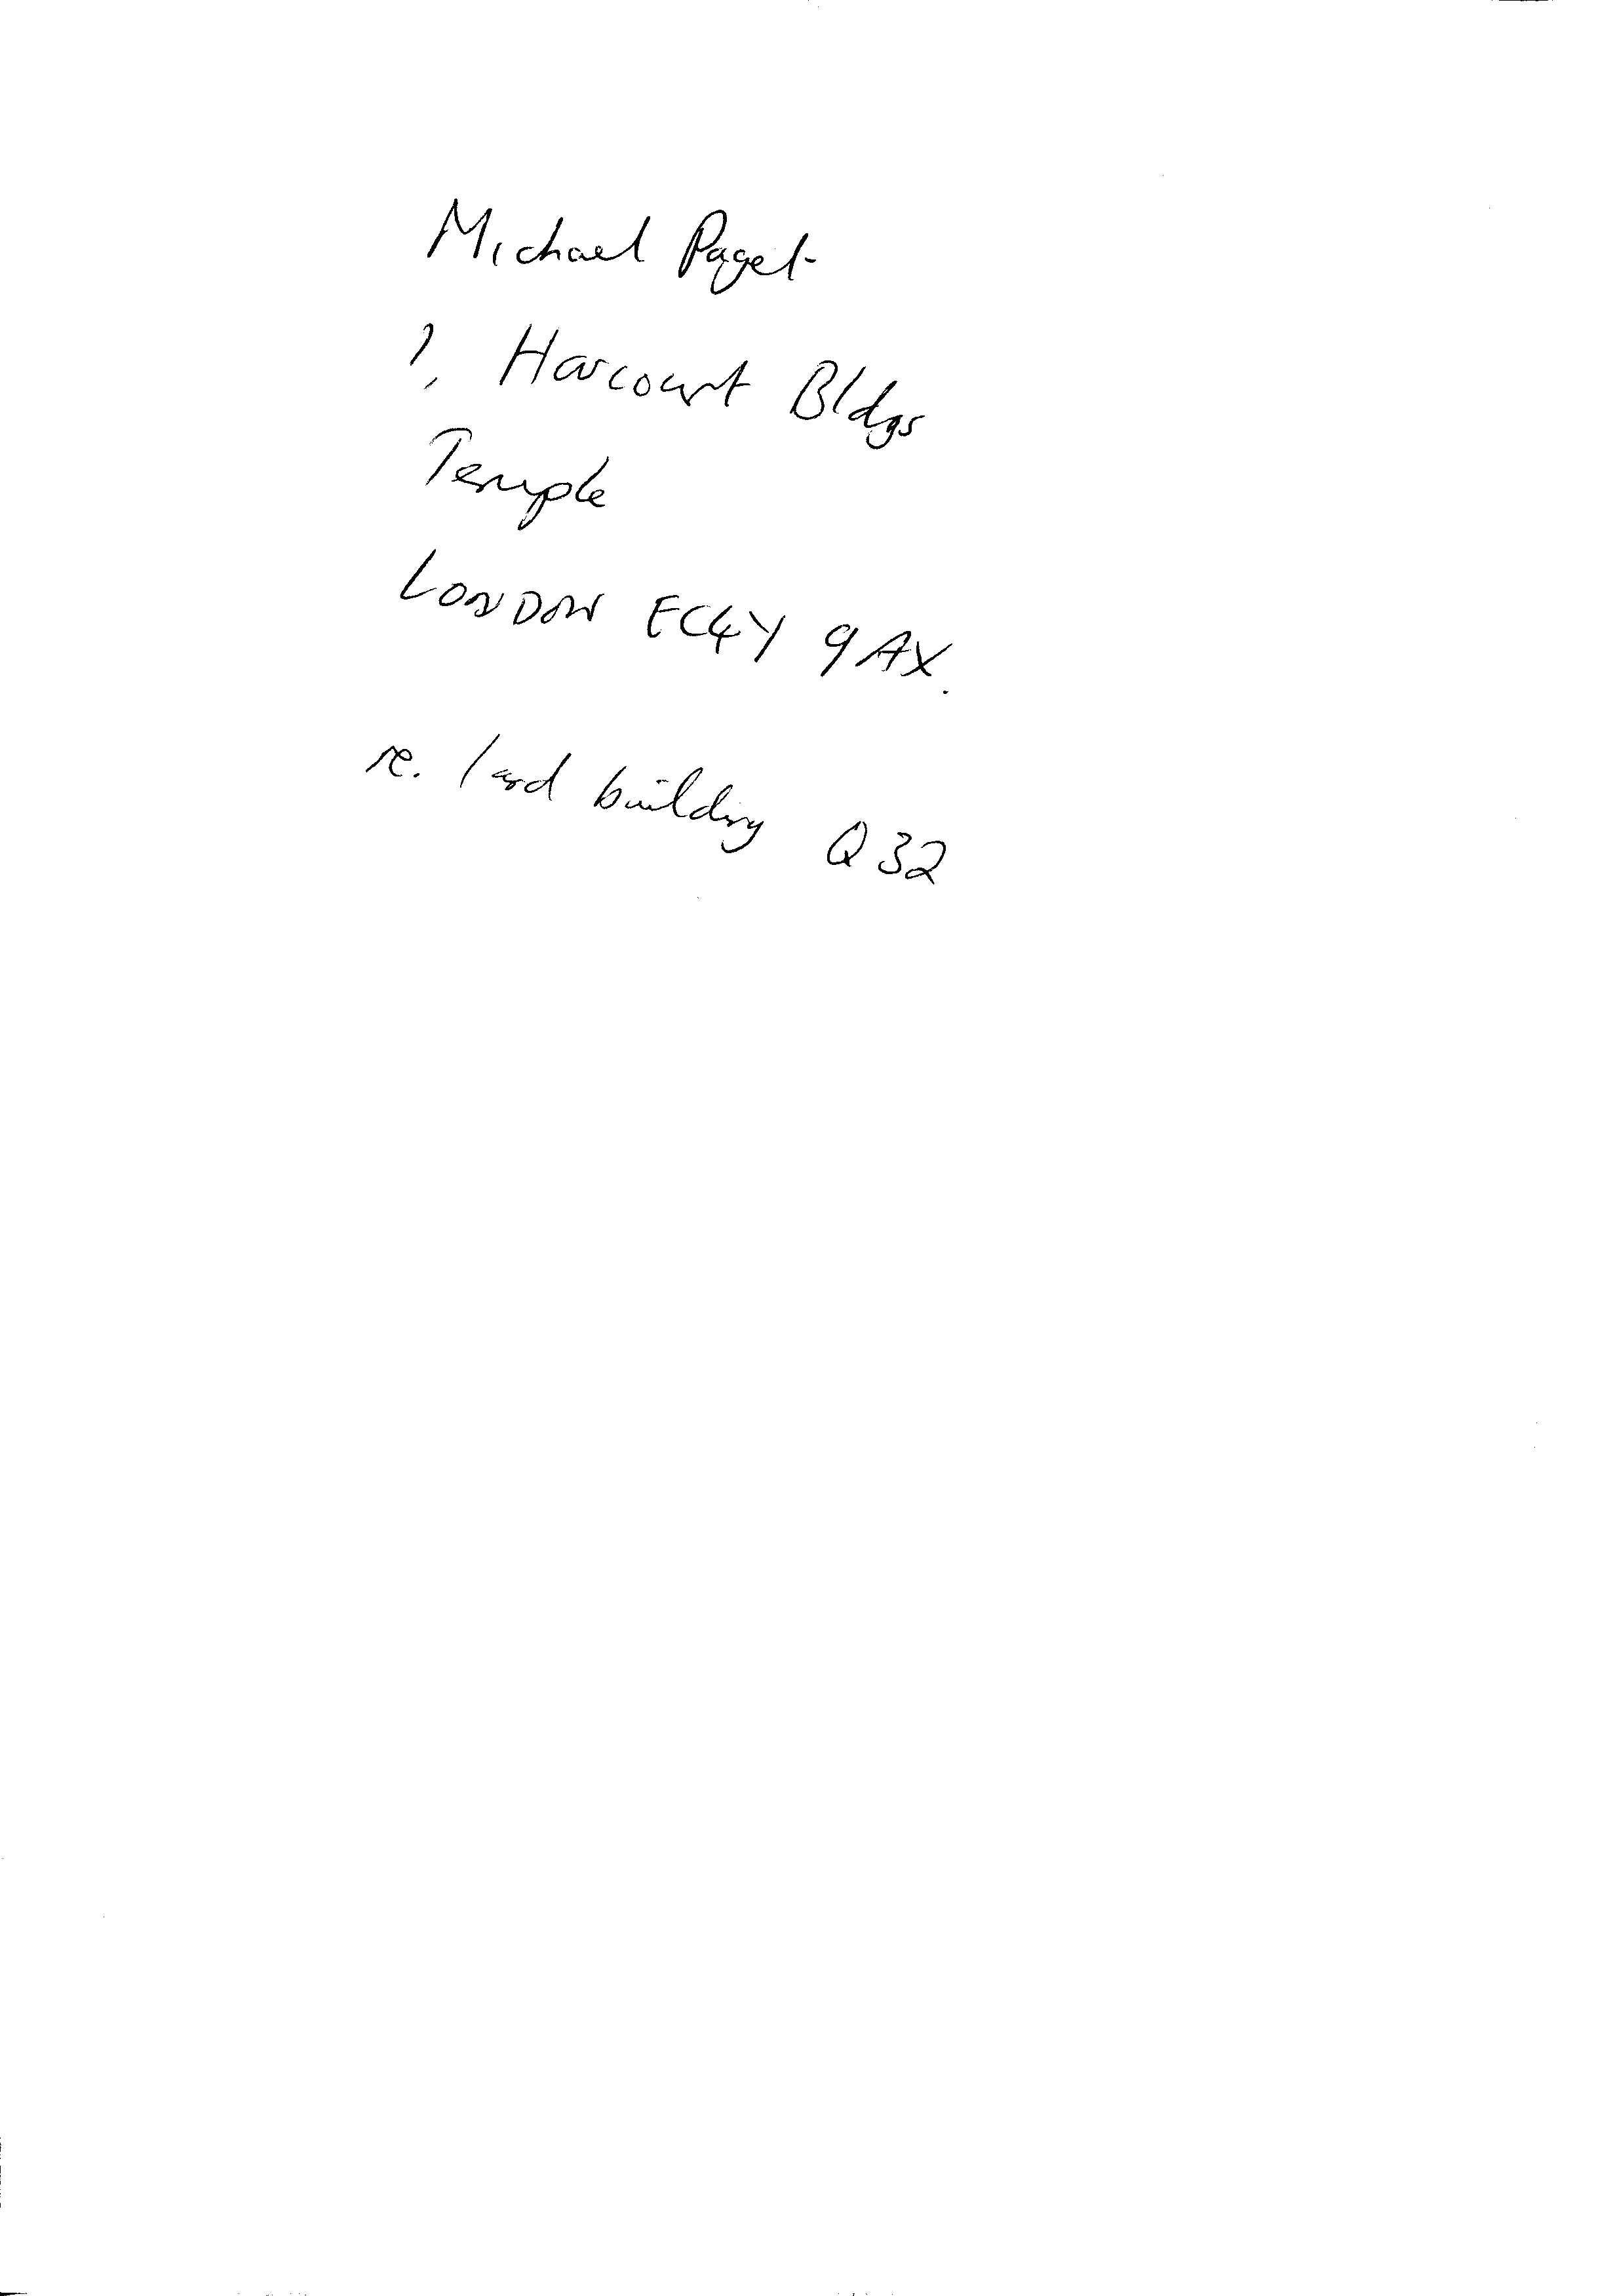 Michael Paget
?, Harcourt Bldgs
Temple
LONDON EC4Y 9AX.
re. land building Q32